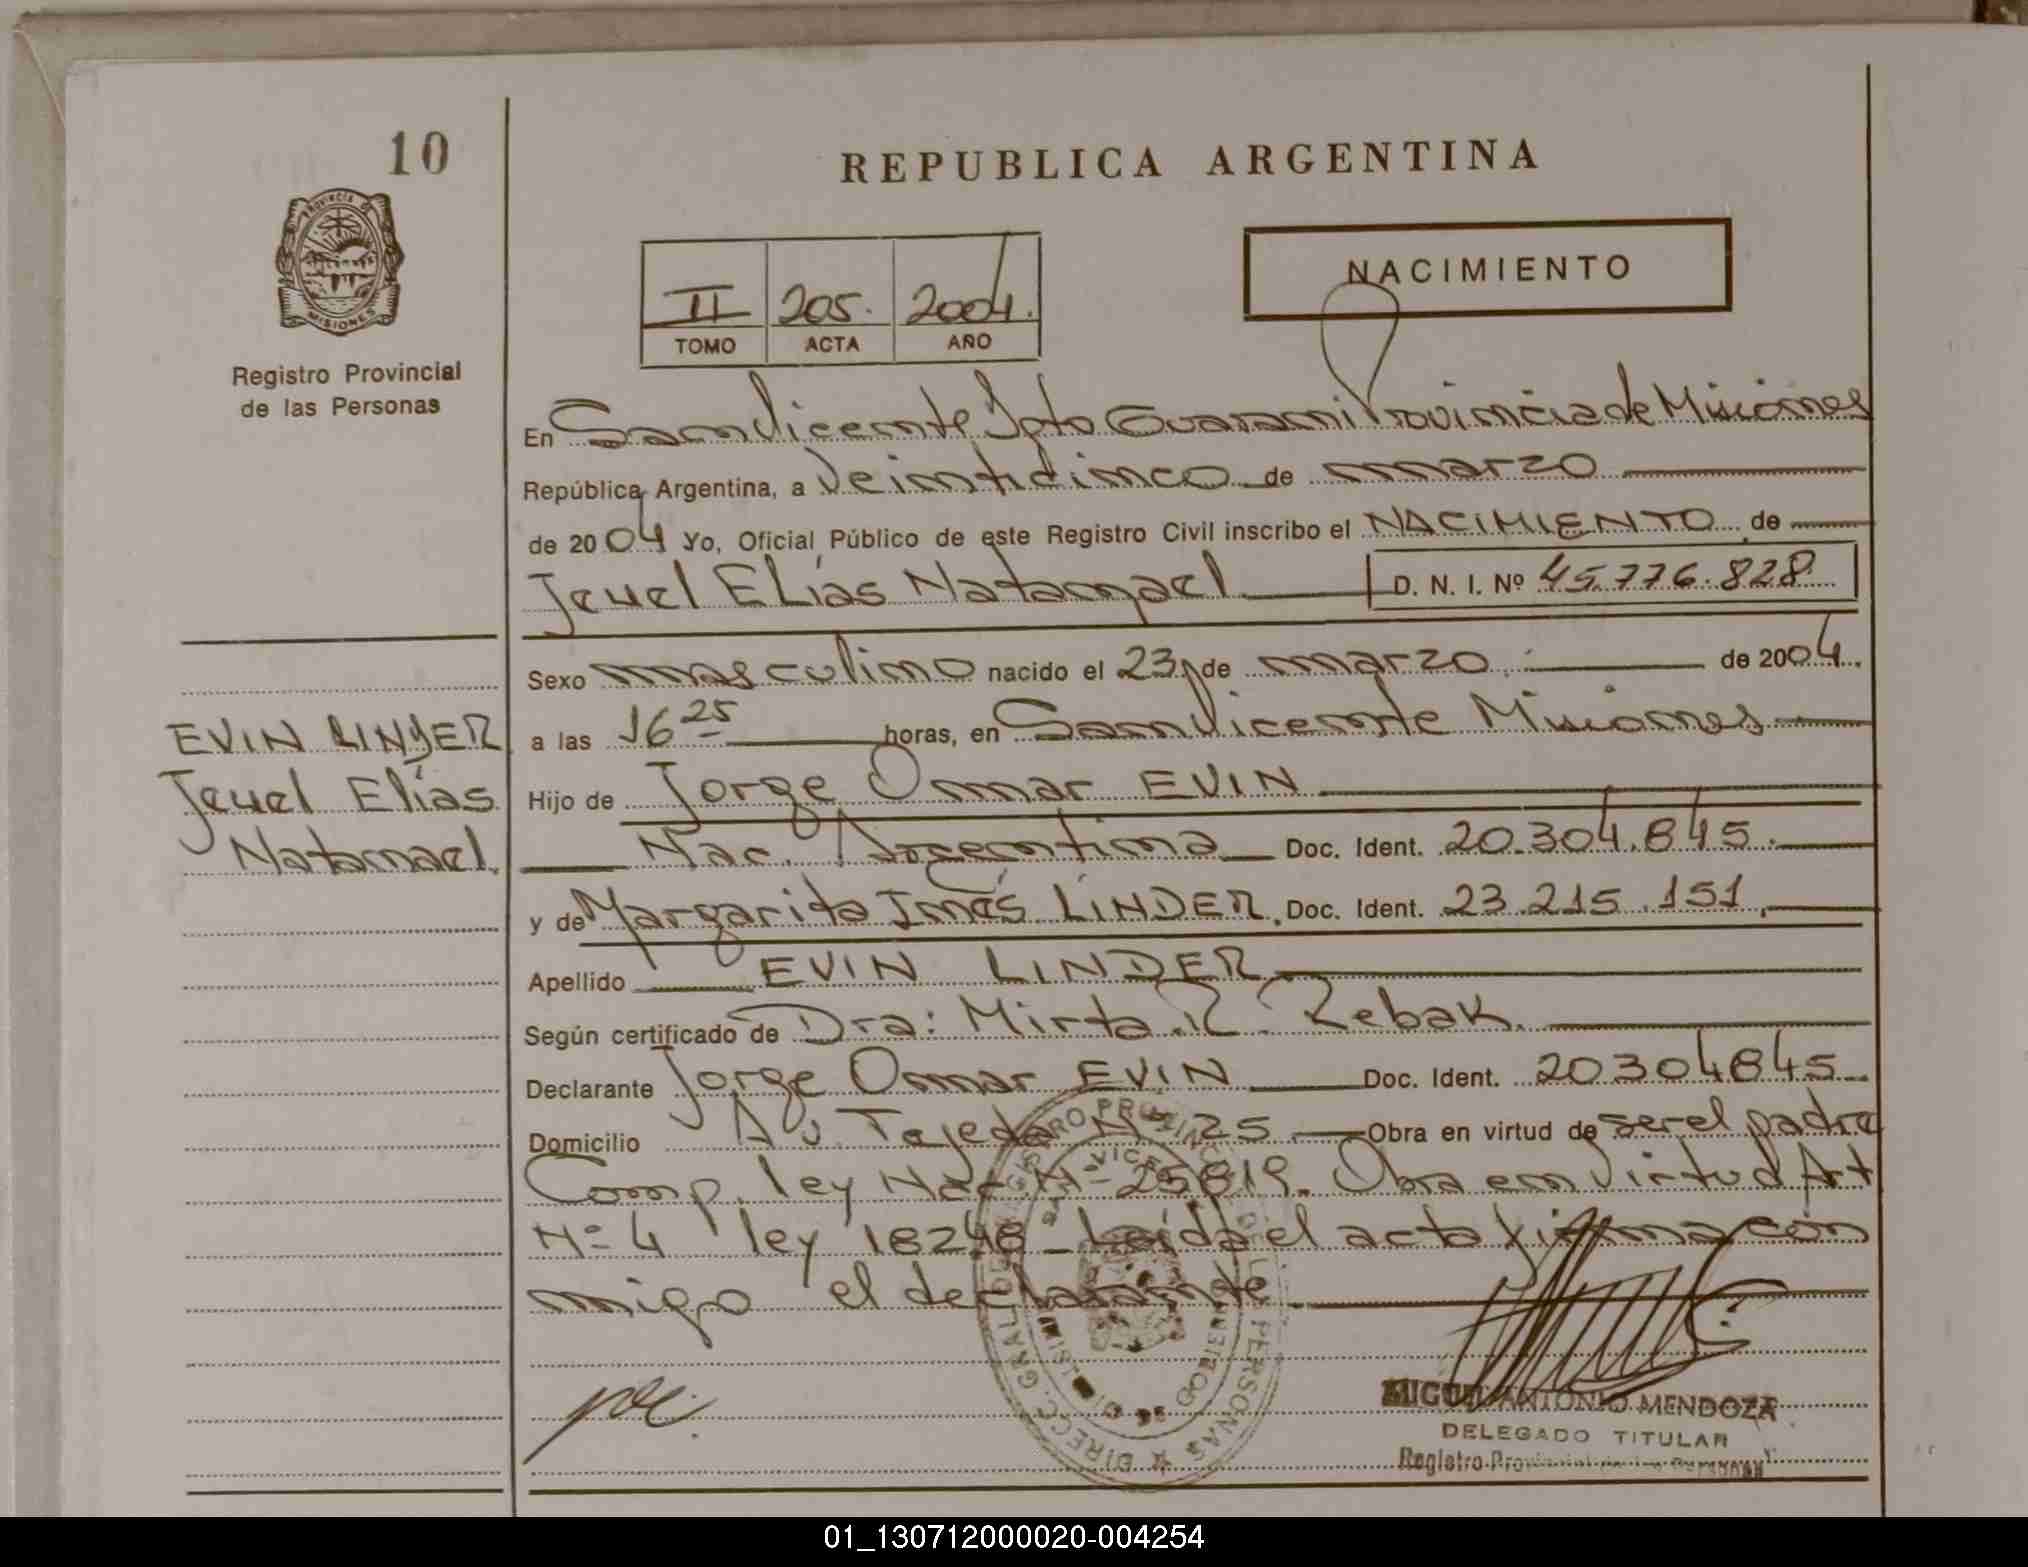 10
REPUBLICA ARGENTINA
PROVINCIA DE
MISIONES
Registro Provincial
de las Personas
II 205. 2004.
TOMO ACTA AÑO
NACIMIENTO
En San Vicente Dpto Guarani Provincia de Misiones
República Argentina, a Veinticinco de marzo
de 2004 Yo, Oficial Público de este Registro Civil inscribo el NACIMIENTO de
Jeuel ELías Natanael D. N. I. Nº 45.776.828
Sexo masculino nacido el 23 de marzo de 2004.
a las 16 25 horas, en San Vicente Misiones
Hijo de Jorge Omar EVIN
Nac. Argentina Doc. Ident. 20.304.845.
y de Margarita Inés LINDER. Doc. Ident. 23.215.151.
Apellido EVIN LINDER
Según certificado de Dra: Mirta R. Rebak.
Declarante Jorge Omar EVIN Doc. Ident. 20304845
Domicilio Av. Tejeda Nº 25 Obra en virtud de ser el padre
Comp. ley Nac Nº 25819. Obra en Virtud Art
Nº 4 ley 18248 Leída el acta firma con
migo el declarante
EVIN LINDER
Jeuel Elías
Natanael.
MIGUEL ANTONIO MENDOZA
DELEGADO TITULAR
Registro Provincial de las Personas
01_130712000020-004254